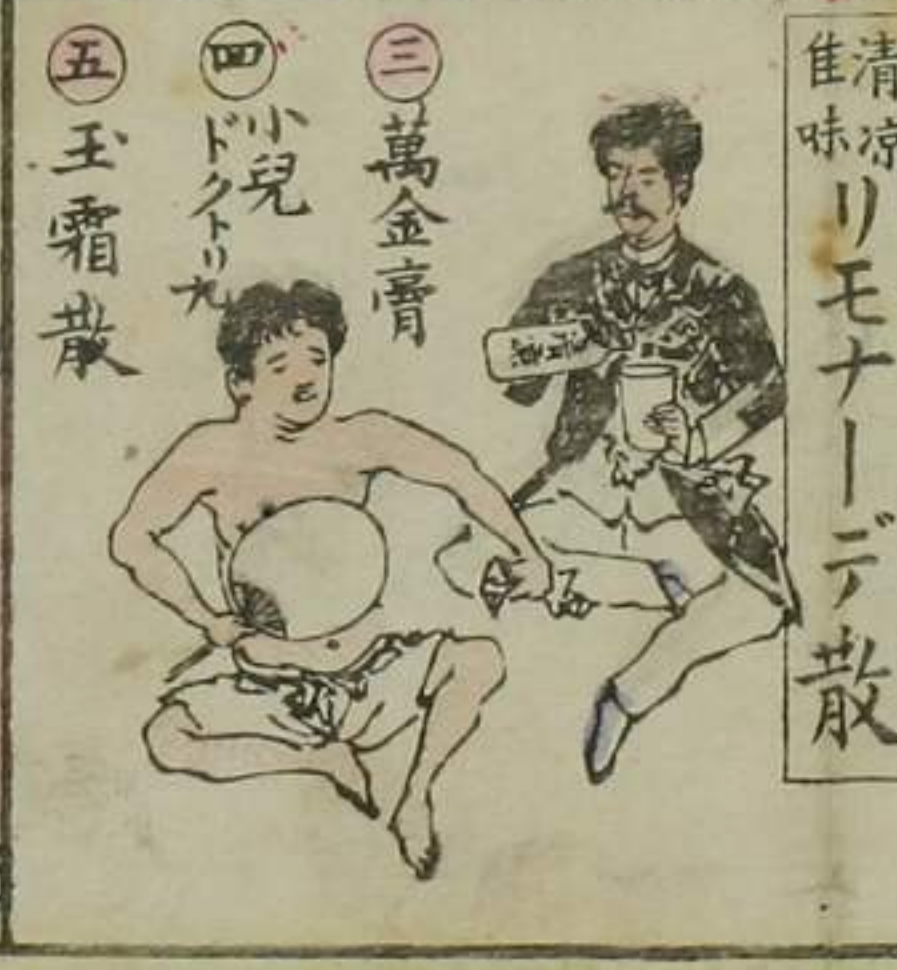 清凉
佳味
リモナーデ散
三
萬金膏
四
小兒
ドクトリ丸
五
玉霜散